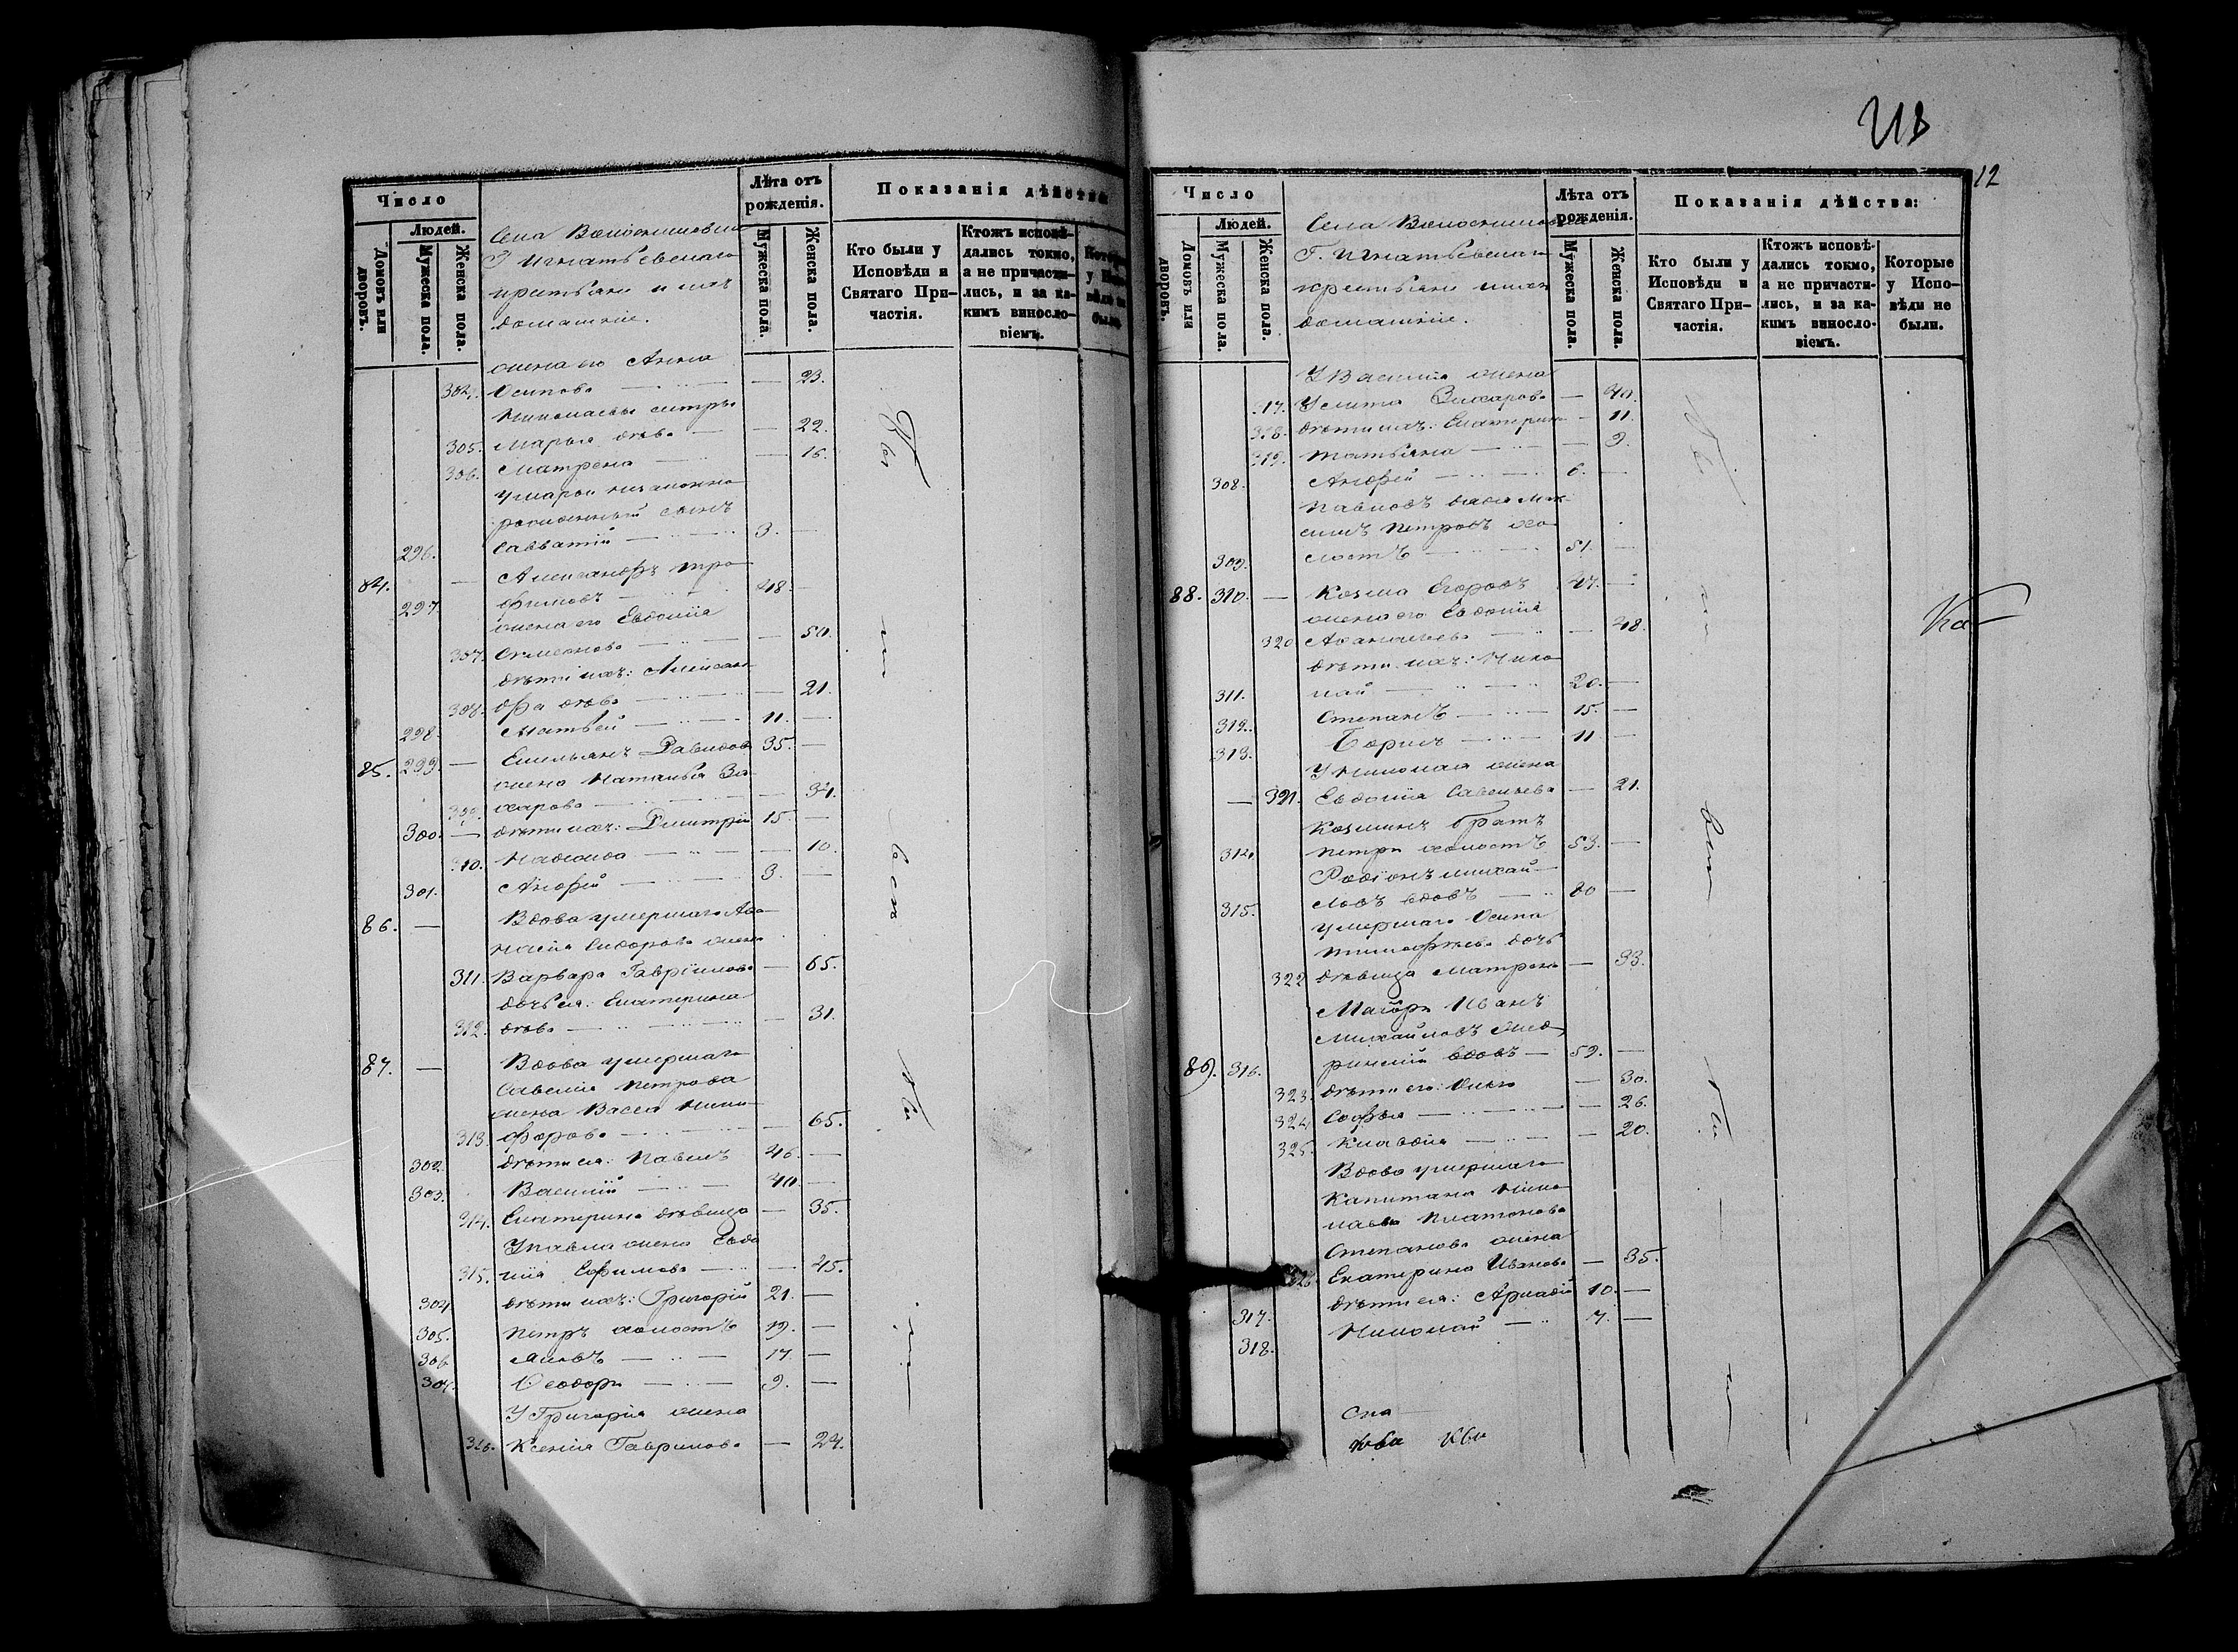 Число
Людей.
Домовъ или дворовъ.
Мужеска пола.
Женска пола.
Лѣта отъ рожденія.
Мужеска пола.
Женска пола.
Показанія дѣйства
Кто были у Исповѣди и Святаго Причастія.
Ктожъ исповѣдались токмо, а не причастились, и за какимъ винословіемъ.
Села
Г Игнатьевскаго
крестьяне и ихъ
домашніе.
жена его Анна
304. Осипова — 23.
Николаевы сестры
305. Марья дѣва — 22.
306. Матрена — 16.
У Марьи незаконно
рожденный сынъ
296. Савватій 3. —
84. — Александръ Тро
297. фимовъ 48. —
жена его Евдокія
307. Семенова — 50.
дѣти ихъ: Алексан
308. дра дѣва — 21.
298. Матвей 11. —
85. 299. — Емельянъ Давидовъ 35. —
жена Наталья За
309. харова — 34.
300. — дѣти ихъ: Дмитрій 15. —
310. Надежда — 10.
301. Андрей 3. —
86. — Вдова умершаго Афа
насія Сидорова жена
311. Варвара Гаврілова — 65.
дочь ея: Екатерина
312. дѣва — 31.
87. — Вдова умершаго
Савелія Петрова
жена Васса Ники
313. форова — 65.
302. дѣти ея: Павелъ 46. —
303. Василій 40. —
314. Екатерина дѣвица — 35.
У Павла жена Евдо
315. кія Ефимова — 45.
304. дѣти ихъ: Григорій 21. —
305. Петръ холостъ 19. —
306. Яковъ 17. —
307. Ѳеодоръ 9. —
У Григорія жена
316. Ксенія Гаврилова — 24.
12
Число
Людей.
Домовъ или дворовъ.
Мужеска пола.
Женска пола.
Лѣта отъ рожденія.
Мужеска пола.
Женска пола.
Показанія дѣйства:
Кто были у Исповѣди и Святаго Причастія.
Ктожъ исповѣдались токмо, а не причастились, и за какимъ винословіемъ.
Которые у Исповѣди не были.
Села
Г. Игнатьевскаго
крестьяне и ихъ
домашніе.
У Василія жена
317. Улита Захарова — 40.
318. дѣти ихъ: Екатерина — 11.
319. Татьяна — 9.
308. Андрей 6. —
Павловъ дядя Мак
симъ Петровъ хо
309. лостъ 51. —
88. 310. — Козма Егоровъ 47. —
жена его Евдокія
320 Афанасьева — 48.
дѣти ихъ: Нико
311. лай 20. —
312. Степанъ 15. —
313. Борисъ 11 —
У Николая жена
— 321. Евдокія Савельева — 21.
Козминъ братъ
314. Петръ холостъ 53. —
Родіонъ Михай
315. ловъ вдовъ 80 —
умершаго Осипа
Тимофѣева дочь
322 дѣвица Матрена — 33.
Маіоръ Иванъ
Михайловъ
89. 316. вдовъ — 59. —
323. дѣти его: Ольга — 30.
324. Софья — 26.
325. Клавдія — 20.
Вдова умершаго
Капитана Нико
лаева Платонова
Степанова жена
326. Екатерина Иванова — 35.
317. дѣти ея: Аркадій 10. —
318. Николай 7. —